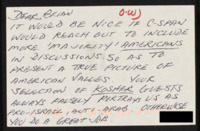 DEAR BRIAN (O-W)
IT WOULD BE NICE IF C-SPAN
WOULD REACH OUT TO INCLUDE
MORE "MAJORITY" AMERICANS
IN DISCUSSIONS SO AS TO
PRESENT A TRUE PICTURE OF
AMERICAN VALUES YOUR
SELECTION OF KOSHER GUESTS
ALWAYS FALSELY PORTRAY US AS
PRO-ISRAEL, ANTI-ARAB OTHERWISE
YOU DO A GREAT JOB